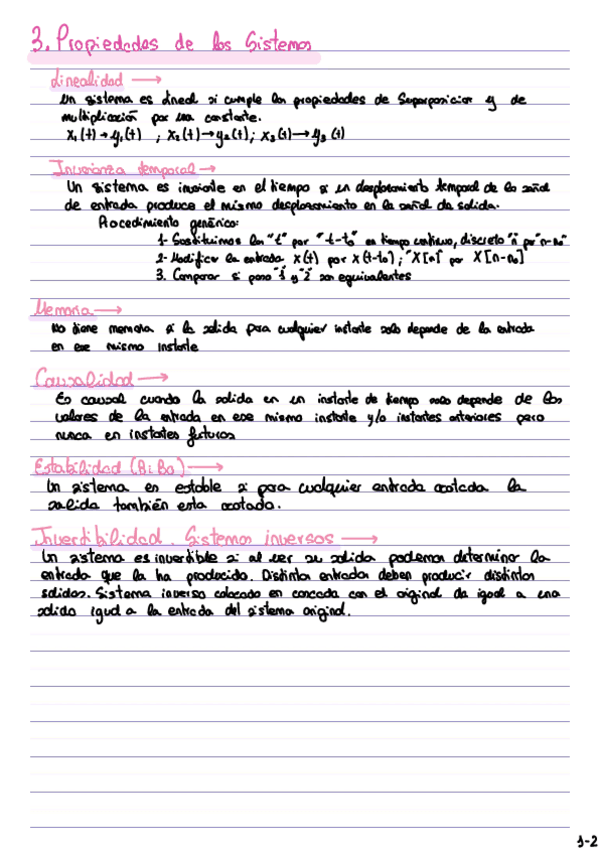 3. Propiedades de los Sistemas
Linealidad →
Un sistema es lineal si cumple las propiedades de Superposicion y de
multiplicación por una constante.
x₁(t)→y₁(t) ; x₂(t)→y₂(t); x₃(t)→y₃(t)
Invarianza temporal →
Un sistema es invariante en el tiempo si un desplazamiento temporal de la señal
de entrada produce el mismo desplazamiento en la señal de salida.
Procedimiento genérico:
1- Sustituimos las "t" por "t-t₀" en tiempo continuo, discreto "n" por "n-n₀"
2- Modificar la entrada x(t) por x(t-t₀) ; "X[n] por X[n-n₀]
3. Comparar si paso "1" y "2" son equivalentes
Memoria →
No tiene memoria si la salida para cualquier instante solo depende de la entrada
en ese mismo instante
Causalidad →
Es causal cuando la salida en un instante de tiempo solo depende de los
valores de la entrada en ese mismo instante y/o instantes anteriores pero
nunca en instantes futuros
Estabilidad (BiBo) →
Un sistema es estable si para cualquier entrada acotada la
salida también esta acotada.
Invertibilidad. Sistemas inversos →
Un sistema es invertible si al ver su salida podemos determinar la
entrada que la ha producido. Distintas entrada deben producir distintas
salidas. Sistema inverso colocado en cascada con el original da igual a una
salida igual a la entrada del sistema original.
1-2